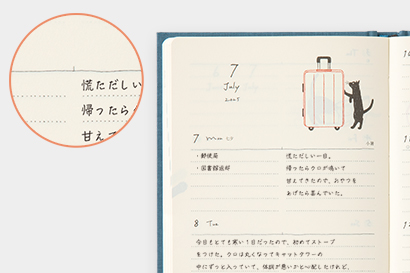 慌ただしい
帰ったら
甘えて
7
July
7 Mon
・郵便局
・図書館返却
慌ただしい一日。
帰ったらクロが鳴いて
甘えてきたので、おやつを
あげたら喜んでいた。
8 Tue
今日もとても寒い1日だったので、初めてストーブ
をつけた。クロは丸くなってキャットタワーの
中にずっと入っていて、体調が悪いかと心配したけれど、